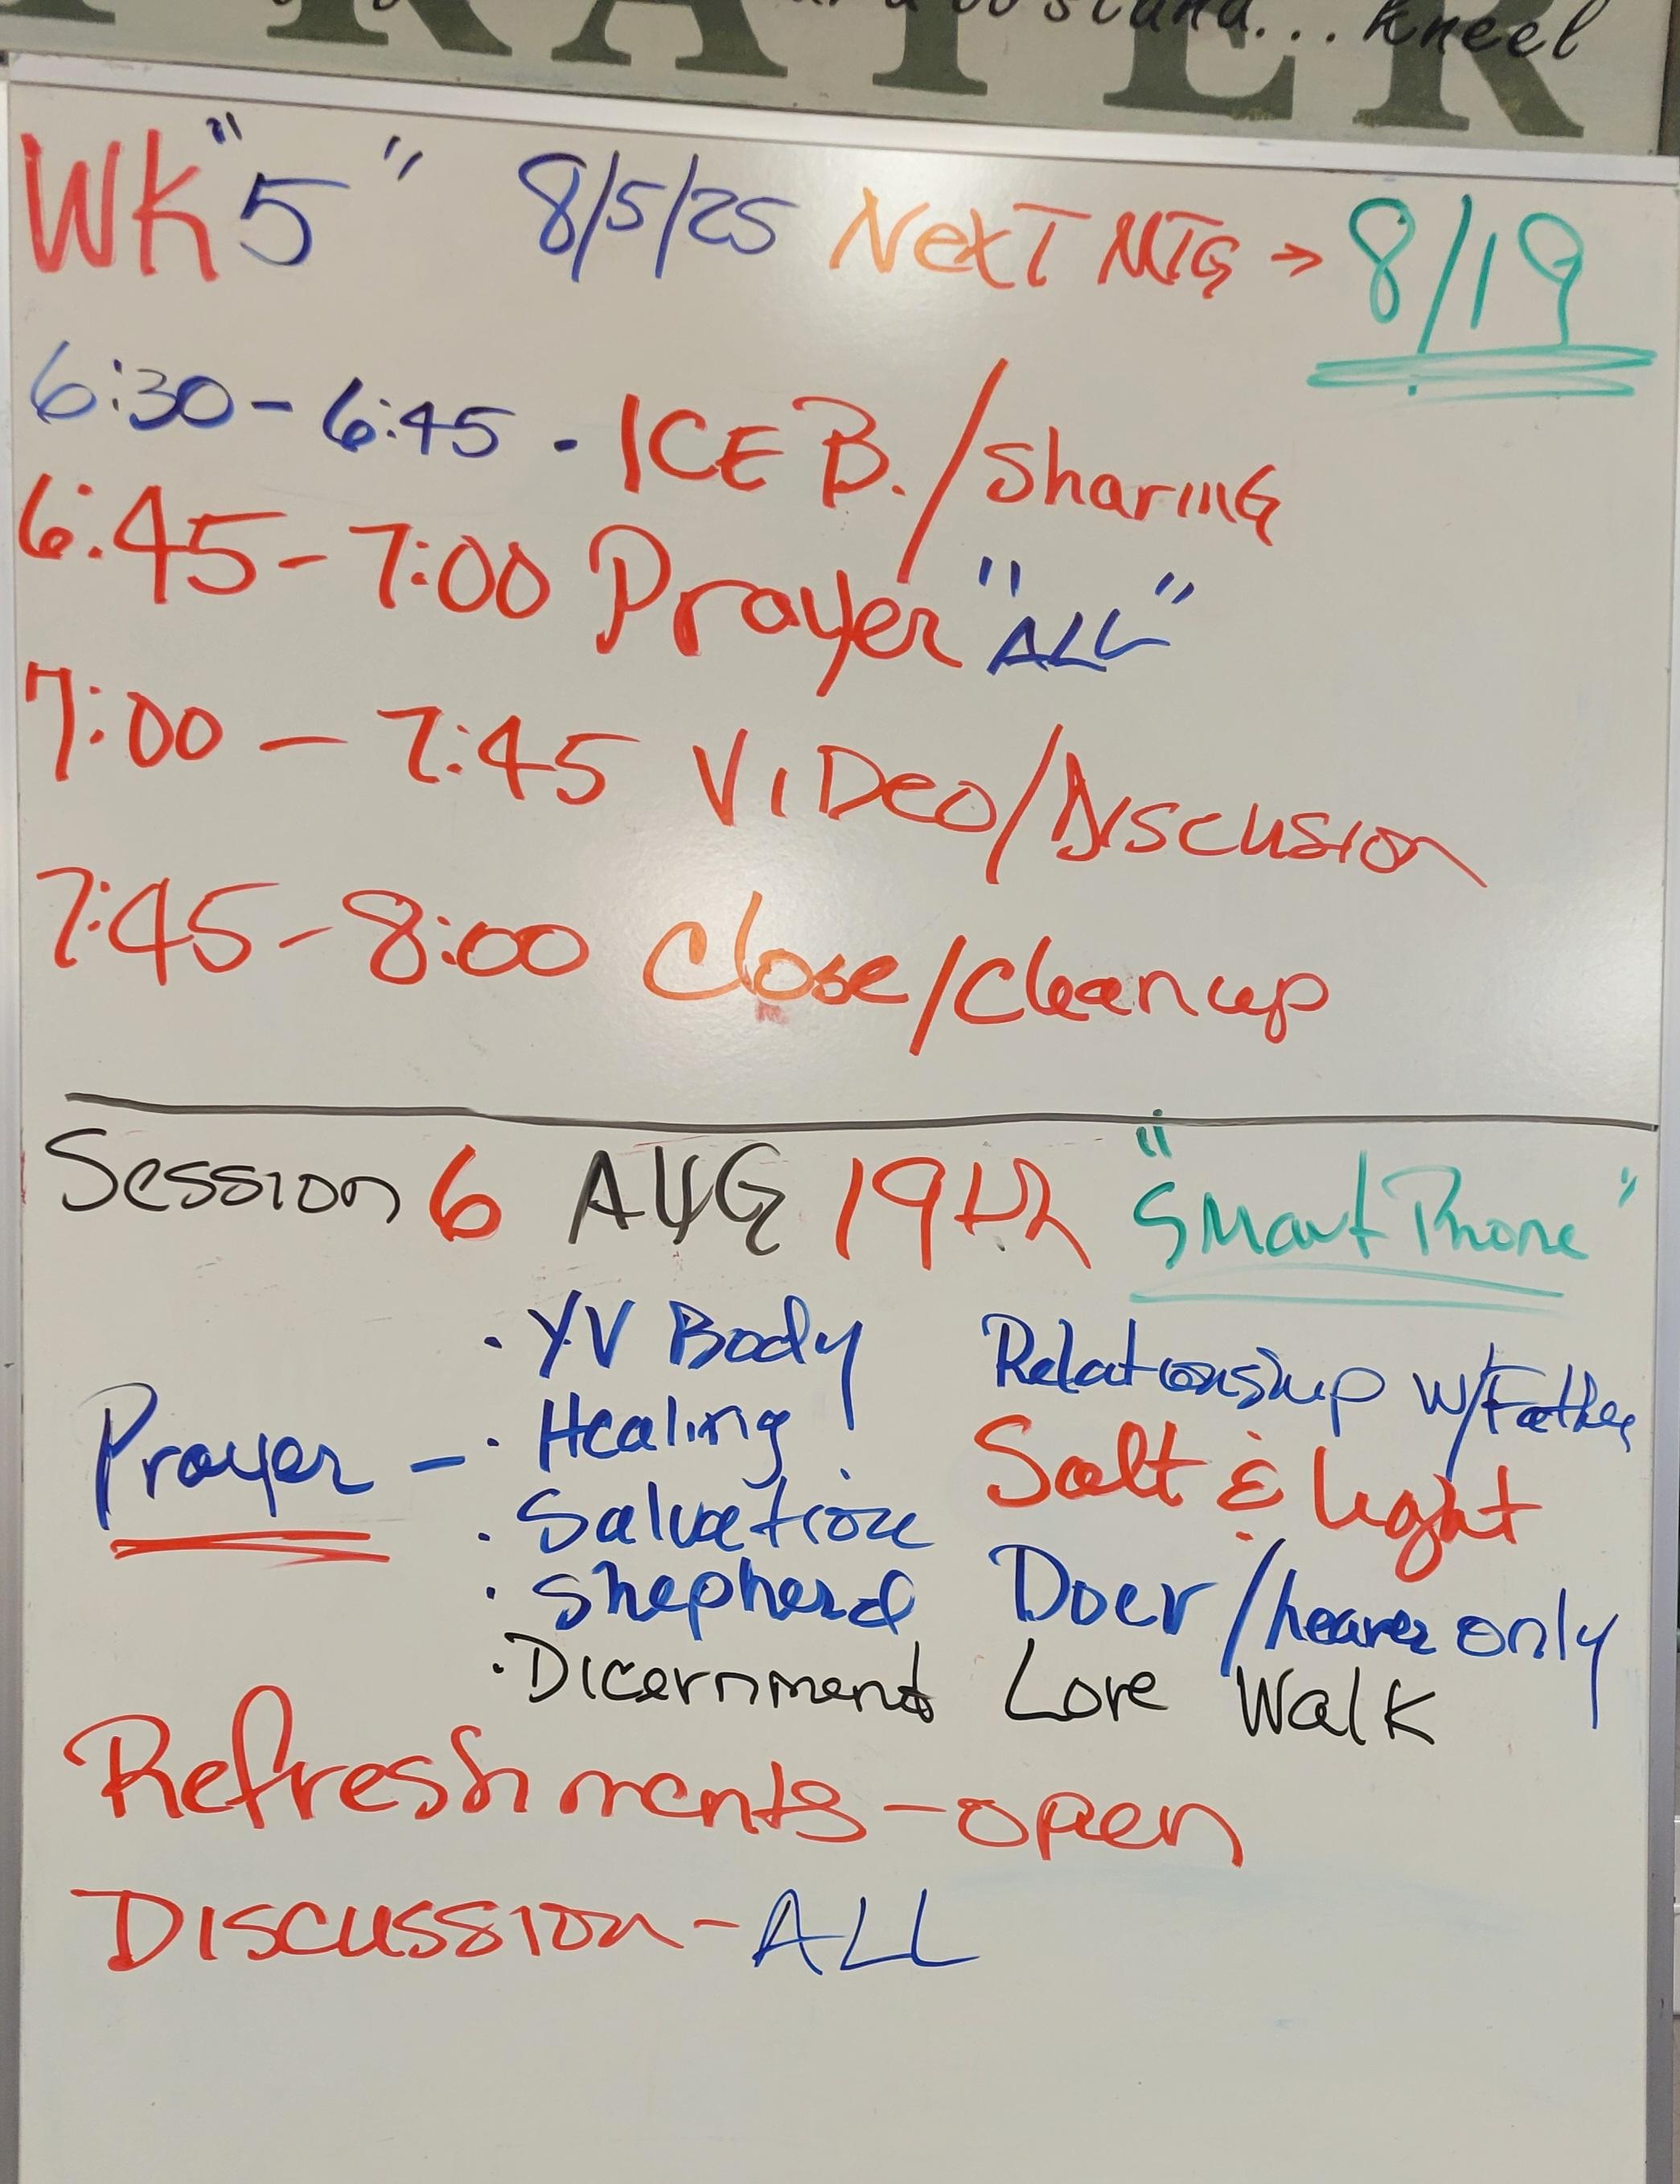 PRAYER
stand... kneel
WK "5" 8/5/25 NexT MTG → 8/19
6:30-6:45 - ICE B./Sharing
6:45-7:00 Prayer "ALL"
7:00 - 7:45 Video/Discusion
7:45-8:00 Close/Cleanup
Session 6 AUG 19th "Smart Phone"
Prayer -
· YV Body
· Healing
· Salvation
· Shepherd
· Dicernment
Relationship w/Father
Salt & light
Doer/hearer only
Love Walk
Refreshments-open
Discussion-ALL